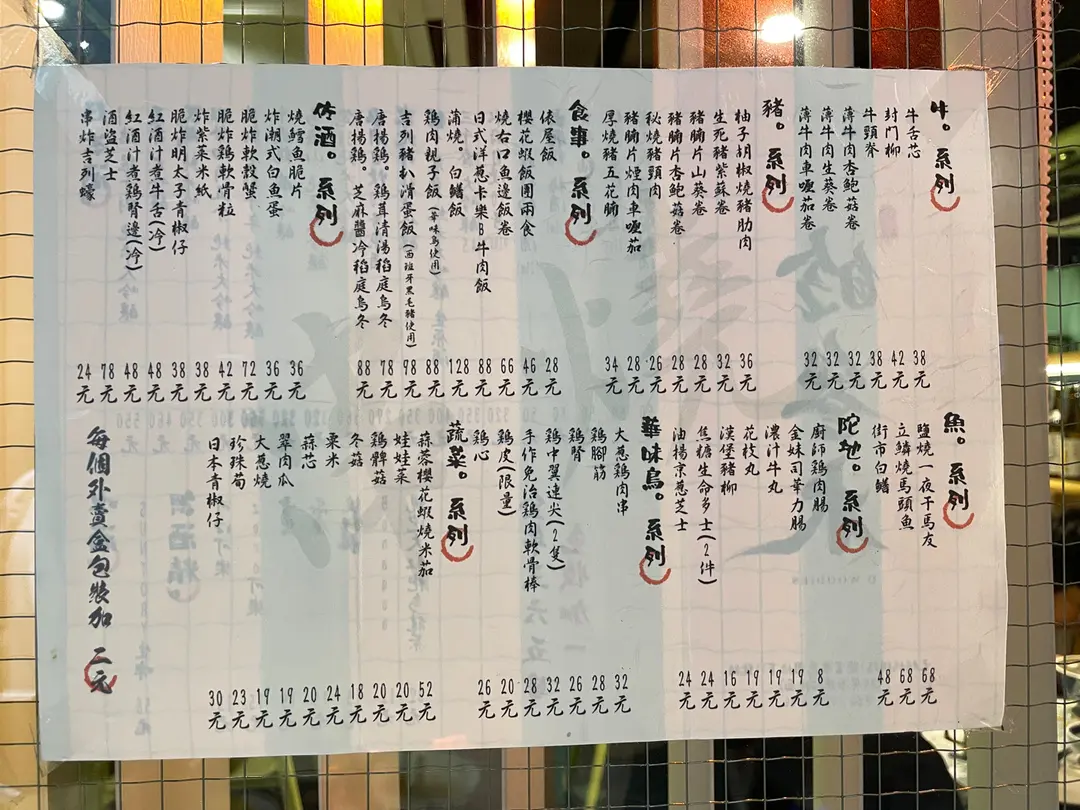 牛。系列
牛舌芯 38元
封門柳 42元
牛頸脊 38元
薄牛肉杏鮑菇卷 32元
薄牛肉生葵卷 32元
薄牛肉車喱茄卷 32元
豬。系列
柚子胡椒燒豬肋肉 36元
生死豬紫蘇卷 32元
豬腩片山葵卷 28元
豬腩片杏鮑菇卷 28元
秘燒豬頸肉 26元
豬腩片煙肉車喱茄 28元
厚燒豬五花腩 34元
食事。系列
俵屋飯 28元
櫻花蝦飯團兩食 46元
燒右口魚邊飯卷 66元
日式洋葱卡樂B牛肉飯 88元
蒲燒。白鱔飯 128元
鷄肉親子飯(華味鳥使用) 88元
吉列豬扒滑蛋飯(西班牙黑毛豬使用) 98元
唐揚鷄。鷄茸清湯稻庭烏冬 78元
唐揚鷄。芝麻醬冷稻庭烏冬 88元
佐酒。系列
燒鱈魚脆片 36元
炸潮式白魚蛋 36元
脆炸軟殼蟹 72元
脆炸鷄軟骨粒 42元
炸紫菜米紙 38元
脆炸明太子青椒仔 38元
紅酒汁煮牛舌(冷) 48元
紅酒汁煮鵝腎邊(冷) 48元
酒盜芝士 78元
串炸吉列蠔 24元
魚。系列
鹽燒一夜干馬友 68元
立鱗燒馬頭魚 68元
街市白鱔 48元
陀地。系列
廚師鷄肉腸 8元
金妹司華力腸 19元
濃汁牛丸 19元
花枝丸 19元
漢堡豬柳 16元
焦糖生命多士(2件) 24元
油揚京葱芝士 24元
華味鳥。系列
大葱鷄肉串 32元
鷄腳筋 28元
鷄腎 26元
鷄中翼連尖(2隻) 32元
手作免治鷄肉軟骨棒 28元
鷄皮(限量) 20元
鷄心 26元
蔬菜。系列
蒜蓉櫻花蝦燒米茄 52元
娃娃菜 20元
鷄髀菇 20元
冬菇 18元
粟米 24元
蒜芯 20元
翠肉瓜 19元
大葱燒 19元
珍珠筍 23元
日本青椒仔 30元
每個外賣盒包裝加 二元